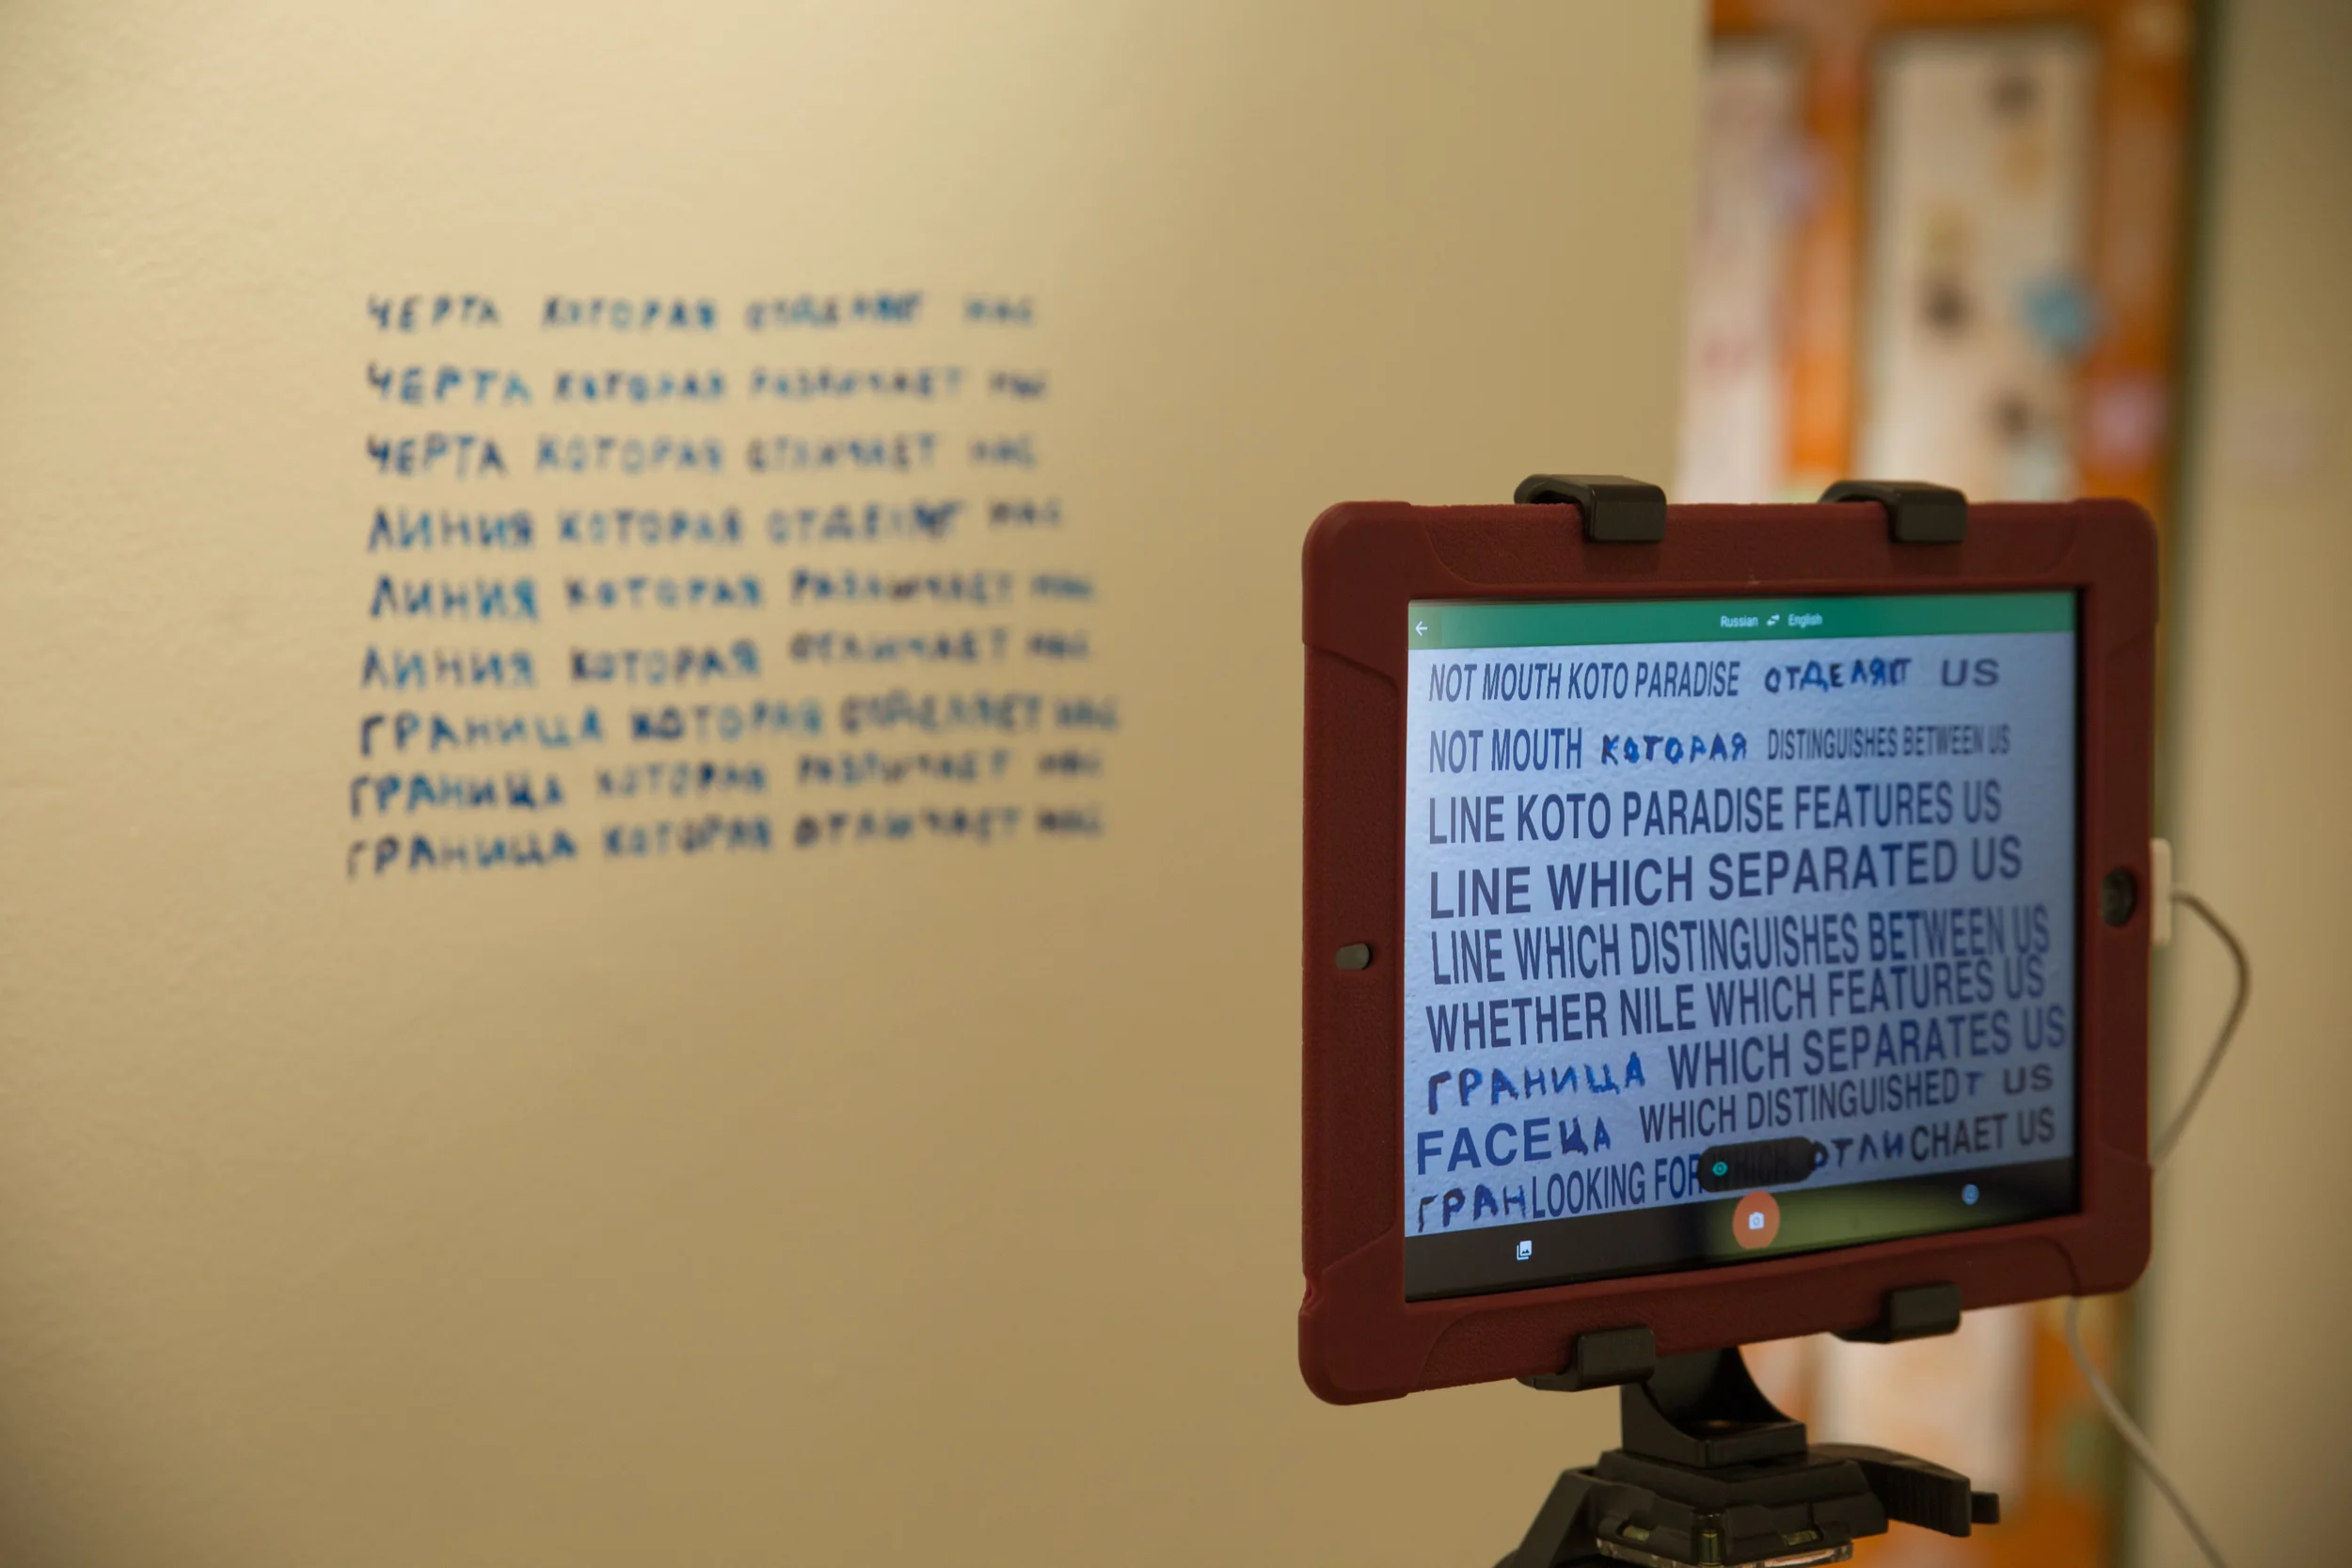 ЧЕРТА КОТОРАЯ ОТДЕЛЯЕТ НАС
ЧЕРТА КОТОРАЯ РАЗЛИЧАЕТ НАС
ЧЕРТА КОТОРАЯ ОТЛИЧАЕТ НАС
ЛИНИЯ КОТОРАЯ ОТДЕЛЯЕТ НАС
ЛИНИЯ КОТОРАЯ РАЗЛИЧАЕТ НАС
ЛИНИЯ КОТОРАЯ ОТЛИЧАЕТ НАС
ГРАНИЦА КОТОРАЯ ОТДЕЛЯЕТ НАС
ГРАНИЦА КОТОРАЯ РАЗЛИЧАЕТ НАС
ГРАНИЦА КОТОРАЯ ОТЛИЧАЕТ НАС
Russian English
NOT MOUTH KOTO PARADISE ОТДЕЛЯЕТ US
NOT MOUTH КОТОРАЯ DISTINGUISHES BETWEEN US
LINE KOTO PARADISE FEATURES US
LINE WHICH SEPARATED US
LINE WHICH DISTINGUISHES BETWEEN US
WHETHER NILE WHICH FEATURES US
ГРАНИЦА WHICH SEPARATES US
FACEЦА WHICH DISTINGUISHEDТ US
ГРАНLOOKING FOR WHICH ОТЛИCHAET US